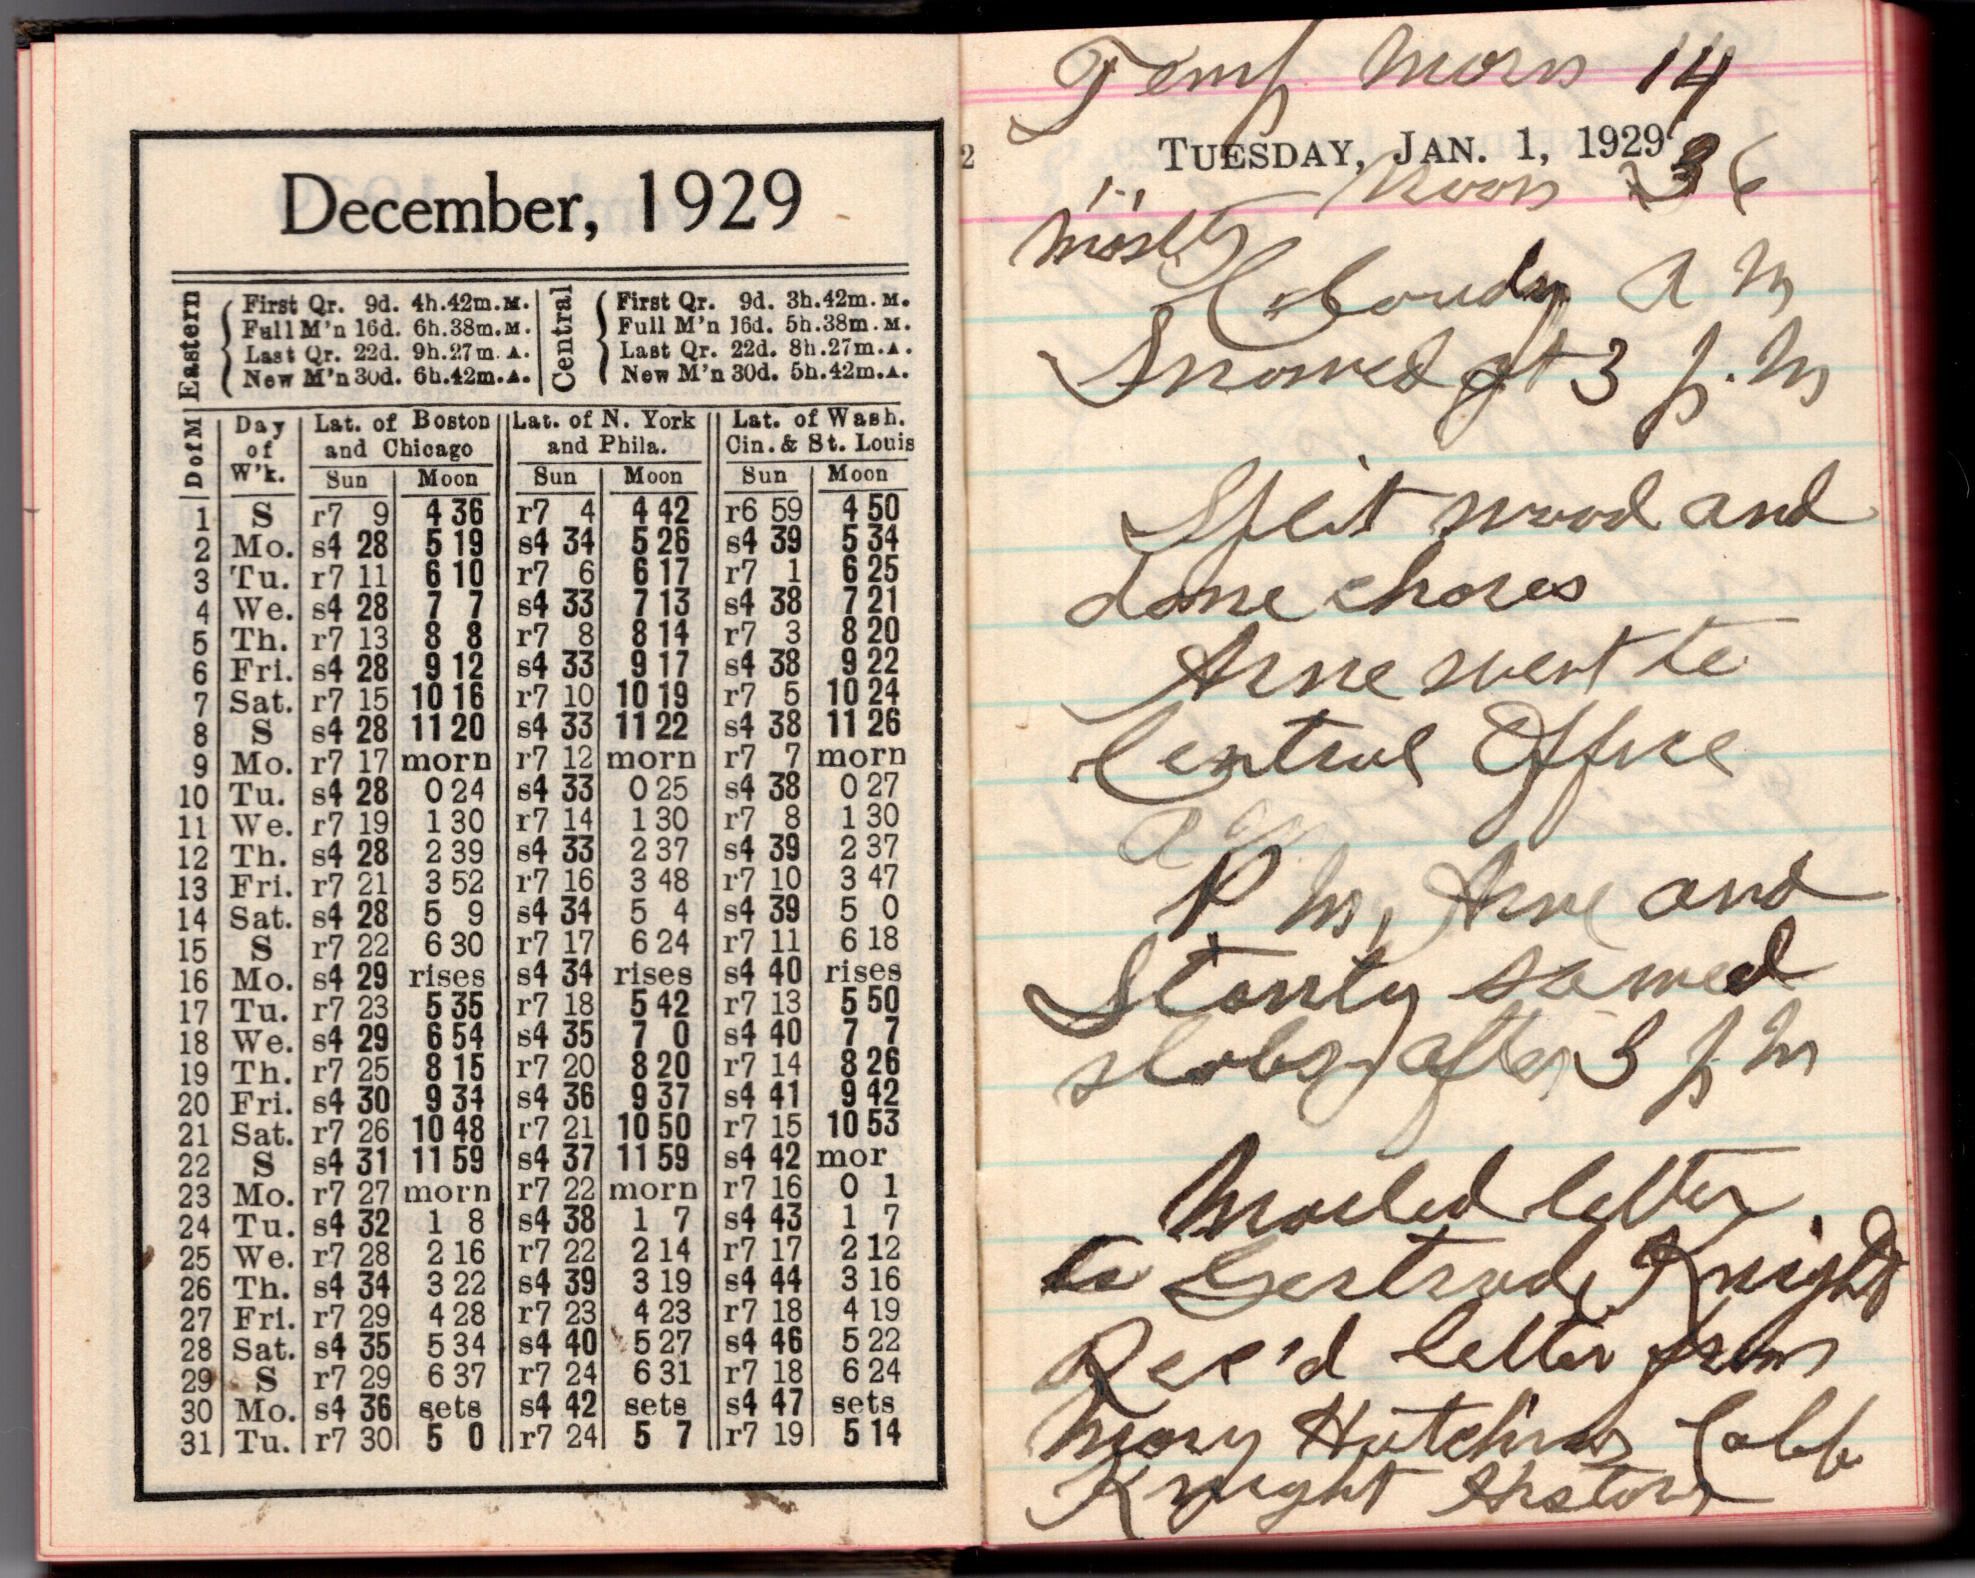 December, 1929
Eastern
First Qr. 9d. 4h.42m.M.
Full M'n 16d. 6h.38m.M.
Last Qr. 22d. 9h.27m.A.
New M'n 30d. 6h.42m.A.
Central
First Qr. 9d. 3h.42m.M.
Full M'n 16d. 5h.38m.M.
Last Qr. 22d. 8h.27m.A.
New M'n 30d. 5h.42m.A.
D of M | Day of W'k. | Lat. of Boston and Chicago | Lat. of N. York and Phila. | Lat. of Wash. Cin. & St. Louis
Sun | Moon | Sun | Moon | Sun | Moon
1 S r7 9 4 36 r7 4 4 42 r6 59 4 50
2 Mo. s4 28 5 19 s4 34 5 26 s4 39 5 34
3 Tu. r7 11 6 10 r7 6 6 17 r7 1 6 25
4 We. s4 28 7 7 s4 33 7 13 s4 38 7 21
5 Th. r7 13 8 8 r7 8 8 14 r7 3 8 20
6 Fri. s4 28 9 12 s4 33 9 17 s4 38 9 22
7 Sat. r7 15 10 16 r7 10 10 19 r7 5 10 24
8 S s4 28 11 20 s4 33 11 22 s4 38 11 26
9 Mo. r7 17 morn r7 12 morn r7 7 morn
10 Tu. s4 28 0 24 s4 33 0 25 s4 38 0 27
11 We. r7 19 1 30 r7 14 1 30 r7 8 1 30
12 Th. s4 28 2 39 s4 33 2 37 s4 39 2 37
13 Fri. r7 21 3 52 r7 16 3 48 r7 10 3 47
14 Sat. s4 28 5 9 s4 34 5 4 s4 39 5 0
15 S r7 22 6 30 r7 17 6 24 r7 11 6 18
16 Mo. s4 29 rises s4 34 rises s4 40 rises
17 Tu. r7 23 5 35 r7 18 5 42 r7 13 5 50
18 We. s4 29 6 54 s4 35 7 0 s4 40 7 7
19 Th. r7 25 8 15 r7 20 8 20 r7 14 8 26
20 Fri. s4 30 9 34 s4 36 9 37 s4 41 9 42
21 Sat. r7 26 10 48 r7 21 10 50 r7 15 10 53
22 S s4 31 11 59 s4 37 11 59 s4 42 mor
23 Mo. r7 27 morn r7 22 morn r7 16 0 1
24 Tu. s4 32 1 8 s4 38 1 7 s4 43 1 7
25 We. r7 28 2 16 r7 22 2 14 r7 17 2 12
26 Th. s4 34 3 22 s4 39 3 19 s4 44 3 16
27 Fri. r7 29 4 28 r7 23 4 23 r7 18 4 19
28 Sat. s4 35 5 34 s4 40 5 27 s4 46 5 22
29 S r7 29 6 37 r7 24 6 31 r7 18 6 24
30 Mo. s4 36 sets s4 42 sets s4 47 sets
31 Tu. r7 30 5 0 r7 24 5 7 r7 19 5 14
Temp Morn 14
2
TUESDAY, JAN. 1, 1929
Noon 36
Mostly
Cloudy A M
Snowed at 3 p. M
Split wood and
done chores
Arne went to
Central Office
P M, Arne and
Stanty sawed
slabs after 3 p M
Mailed letter
to Gertrude Knight
Rec'd letter from
Mary Hutchins Cobb
Knight History